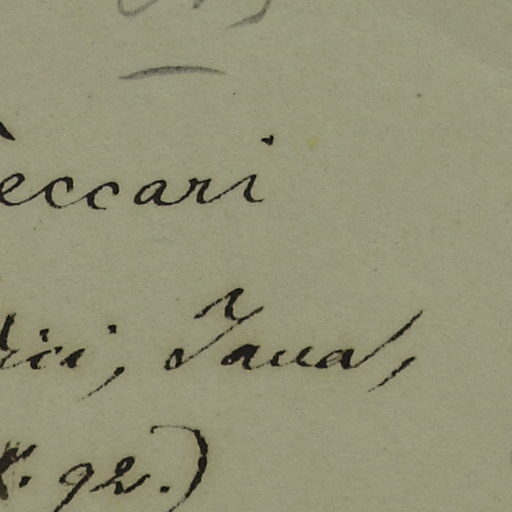 eccari
ici, Java,
92.)